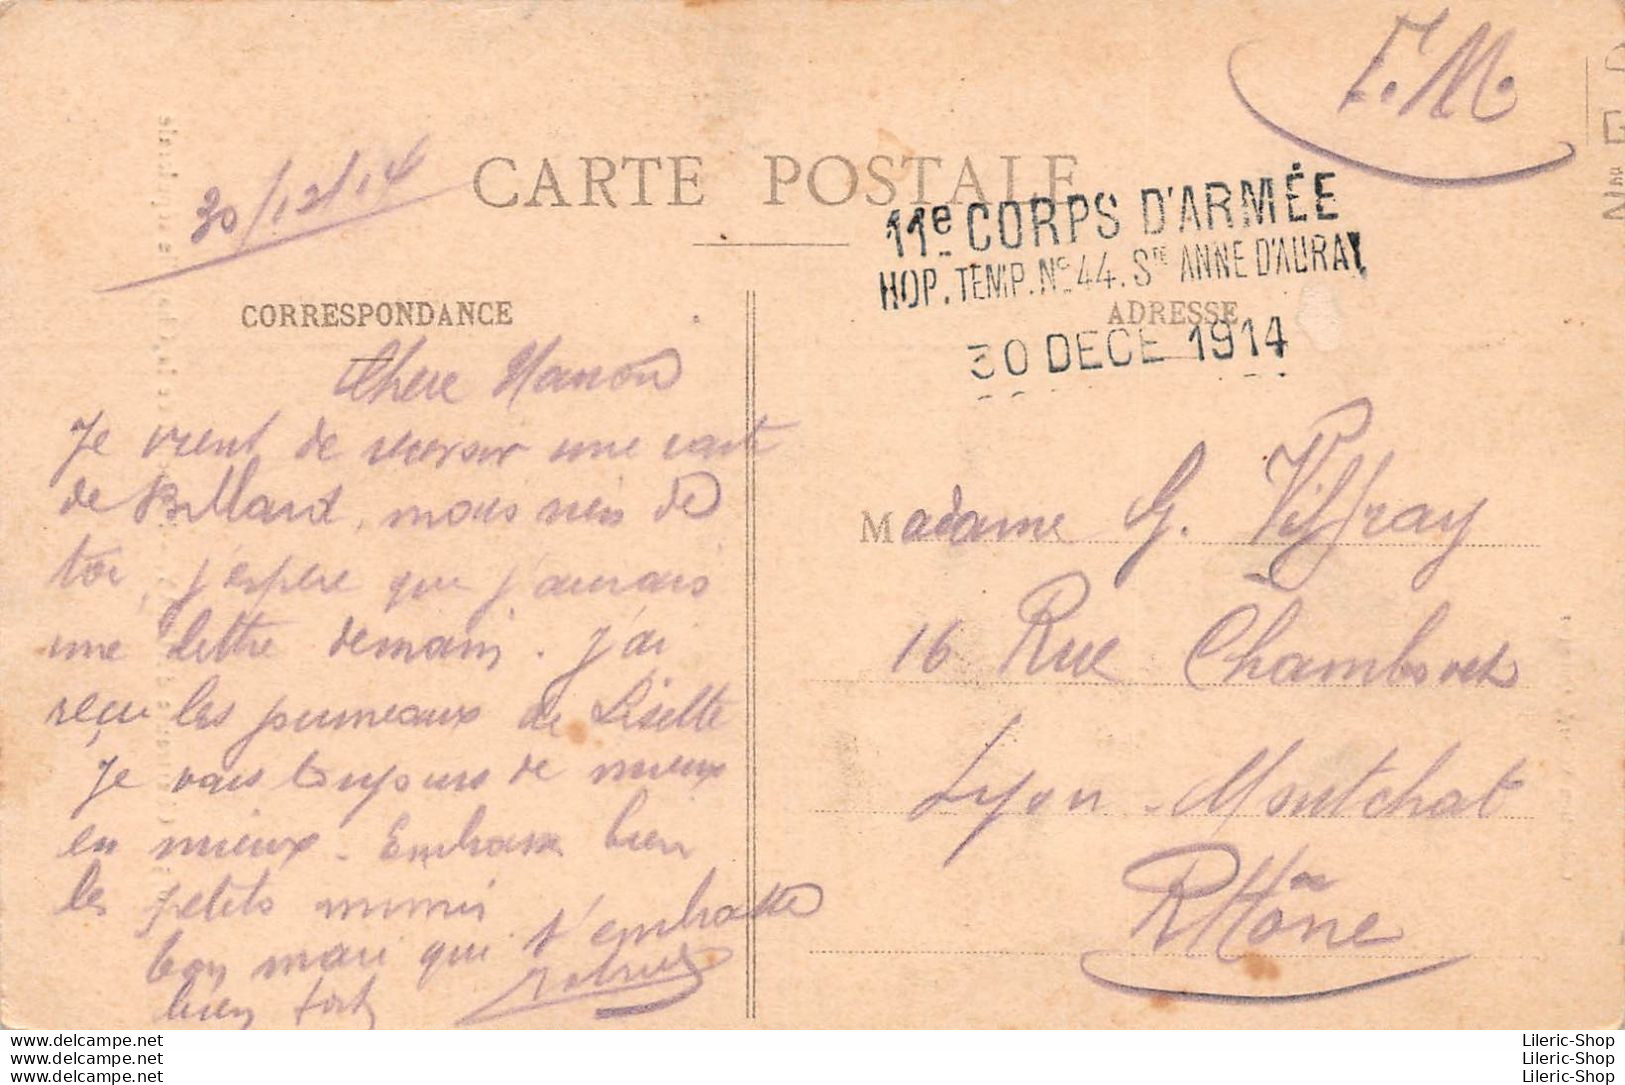 F.M.
30/12/14
CARTE POSTALE
11e CORPS D'ARMÉE
HOP. TEMP. No 44. Ste ANNE D'AURAY
30 DECE 1914
CORRESPONDANCE
ADRESSE
Chere Nanon
Je vient de recevoir une cart
de Billard, mais rien de
toi, j'espere que j'aurais
une lettre demain. J'ai
reçu les pumeaux de Lisette
Je vais toujours de mieux
en mieux. Embrasse bien
les petits mimis
ton mari qui t'embrasse
bien fort
Madame G. Viffray
16 Rue Chambovet
Lyon - Montchat
Rhône
Lileric-Shop.net
Lileric-Shop.net
Lileric-Shop.net
Lileric-Shop
Lileric-Shop
Lileric-Shop